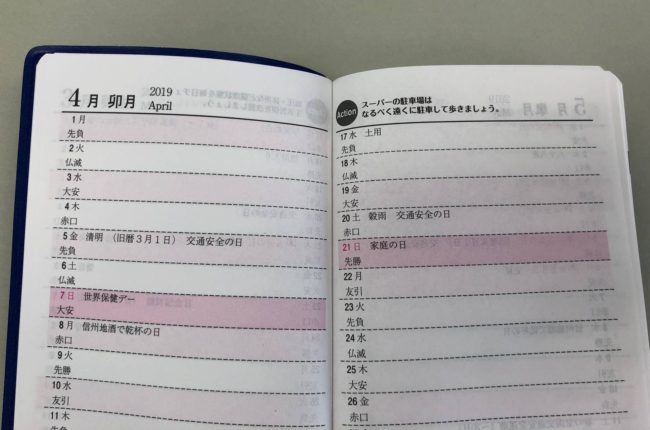 4月 卯月 2019
April
1 月
先負
2 火
仏滅
3 水
大安
4 木
赤口
5 金 清明 (旧暦3月1日) 交通安全の日
先負
6 土
仏滅
7 日 世界保健デー
大安
8 月 信州地酒で乾杯の日
赤口
9 火
先勝
10 水
友引
11 木
先負
Action スーパーの駐車場は
なるべく遠くに駐車して歩きましょう。
17 水 土用
先負
18 木
仏滅
19 金
大安
20 土 穀雨 交通安全の日
赤口
21 日 家庭の日
先勝
22 月
友引
23 火
先負
24 水
仏滅
25 木
大安
26 金
赤口